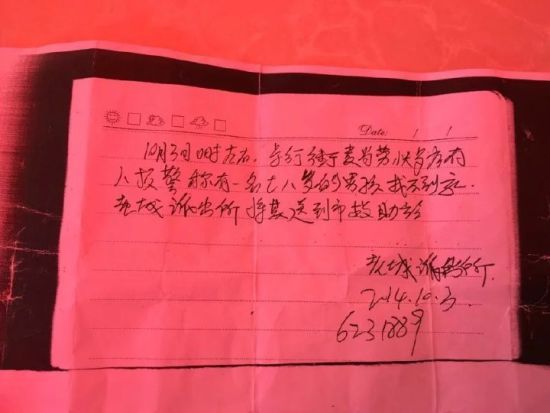 Date: / /
10月3日 时左右,步行街麦当劳快餐店有
人报警称有一名七八岁的男孩找不到家.
老城派出所将其送到市救助站
老城派出所.
2014.10.3
6231889